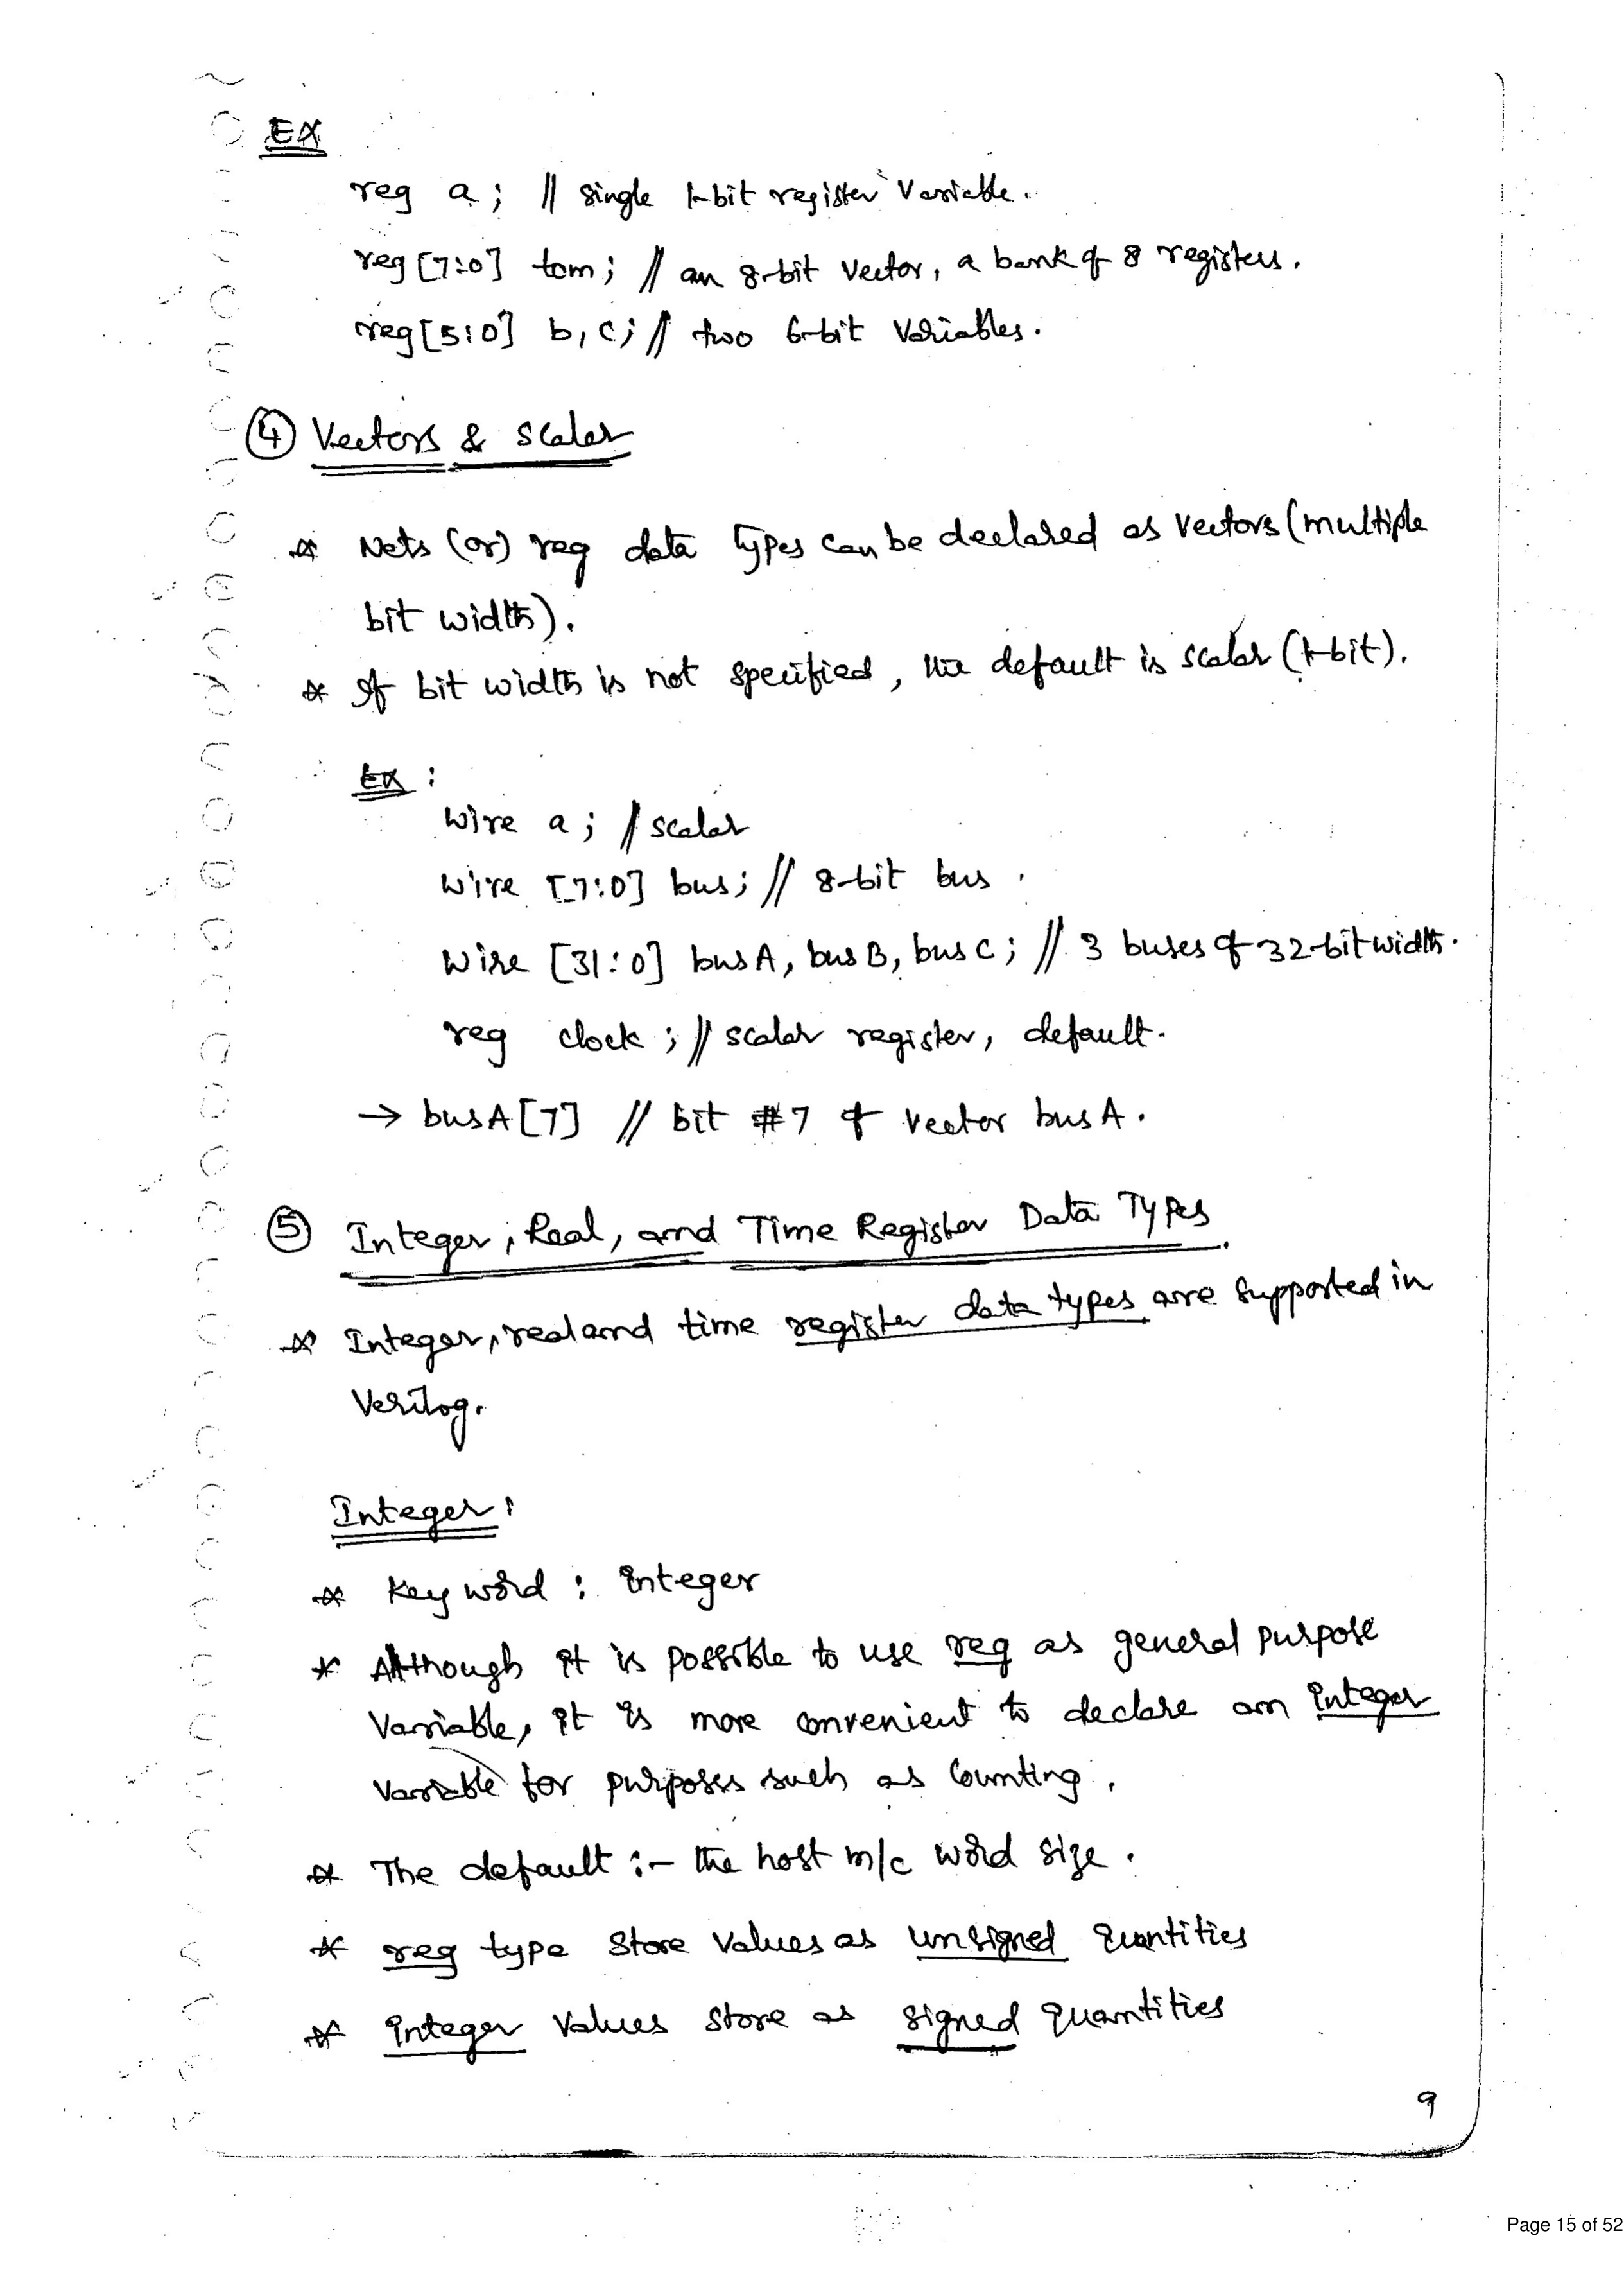 EX
reg a; // single 1-bit register variable.
reg [7:0] tom; // an 8-bit vector, a bank of 8 registers.
reg [5:0] b, c; // two 6-bit variables.
④ Vectors & Scalar
* Nets (or) reg data types can be declared as vectors (multiple
bit width).
* If bit width is not specified, the default is scalar (1-bit).
EX :
wire a; // scalar
wire [7:0] bus; // 8-bit bus.
wire [31:0] busA, busB, busC; // 3 buses of 32-bit width.
reg clock; // scalar register, default.
→ busA[7] // bit #7 of vector busA.
⑤ Integer, Real, and Time Register Data Types
* Integer, real and time register data types are supported in
Verilog.
Integer:
* Key word : integer
* Although it is possible to use reg as general purpose
variable, it is more convenient to declare an integer
variable for purposes such as counting.
* The default :- the host m/c word size.
* reg type store values as unsigned quantities
* integer values store as signed quantities
9
Page 15 of 52